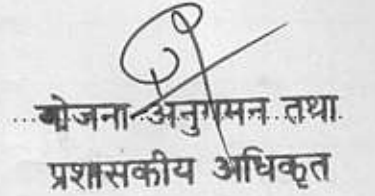 योजना अनुगमन तथा
प्रशासकीय अधिकृत